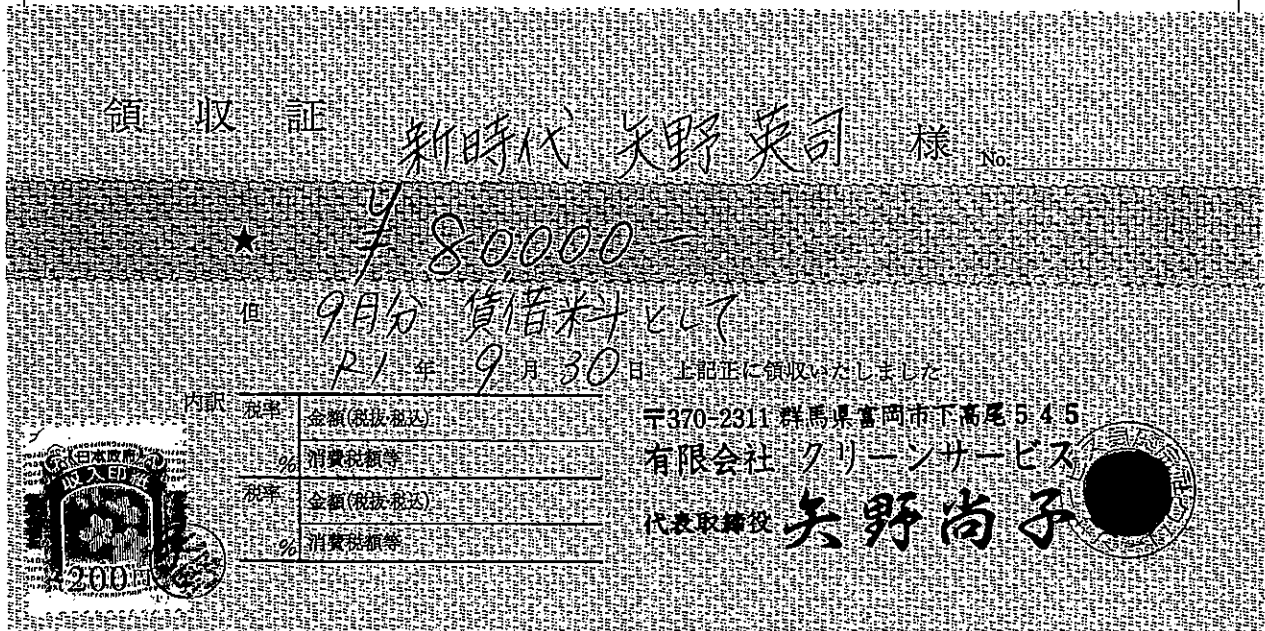 領収証
新時代 矢野 英司 様 No.
★ ¥80,000-
但 9月分 賃借料として
R1年9月30日 上記正に領収いたしました
内訳 税率 金額(税抜・税込)
% 消費税額等
税率 金額(税抜・税込)
% 消費税額等
〒370-2311 群馬県富岡市下高尾545
有限会社 クリーンサービス
代表取締役 矢野尚子
日本政府
収入印紙
200円